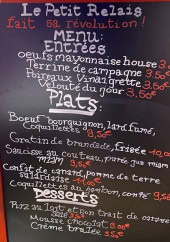 Le Petit Relais
fait sa révolution!
MENU:
ENTRÉES
oeufs mayonnaise house 3.
Terrine de campagne 3.50€
Poireaux Vinaigrette 3.50€
Velouté du jour 3,50€
Plats:
Boeuf bourguignon, lard fumé,
Coquillettes 9,50€
Gratin de brandade, frisée
Saucisse au couteau, purée
Confit de canard, pomme de terre
Coquillettes au jambon, comté
Desserts
Riz au lait
Mousse chocolat
Crème brulée 3.5€